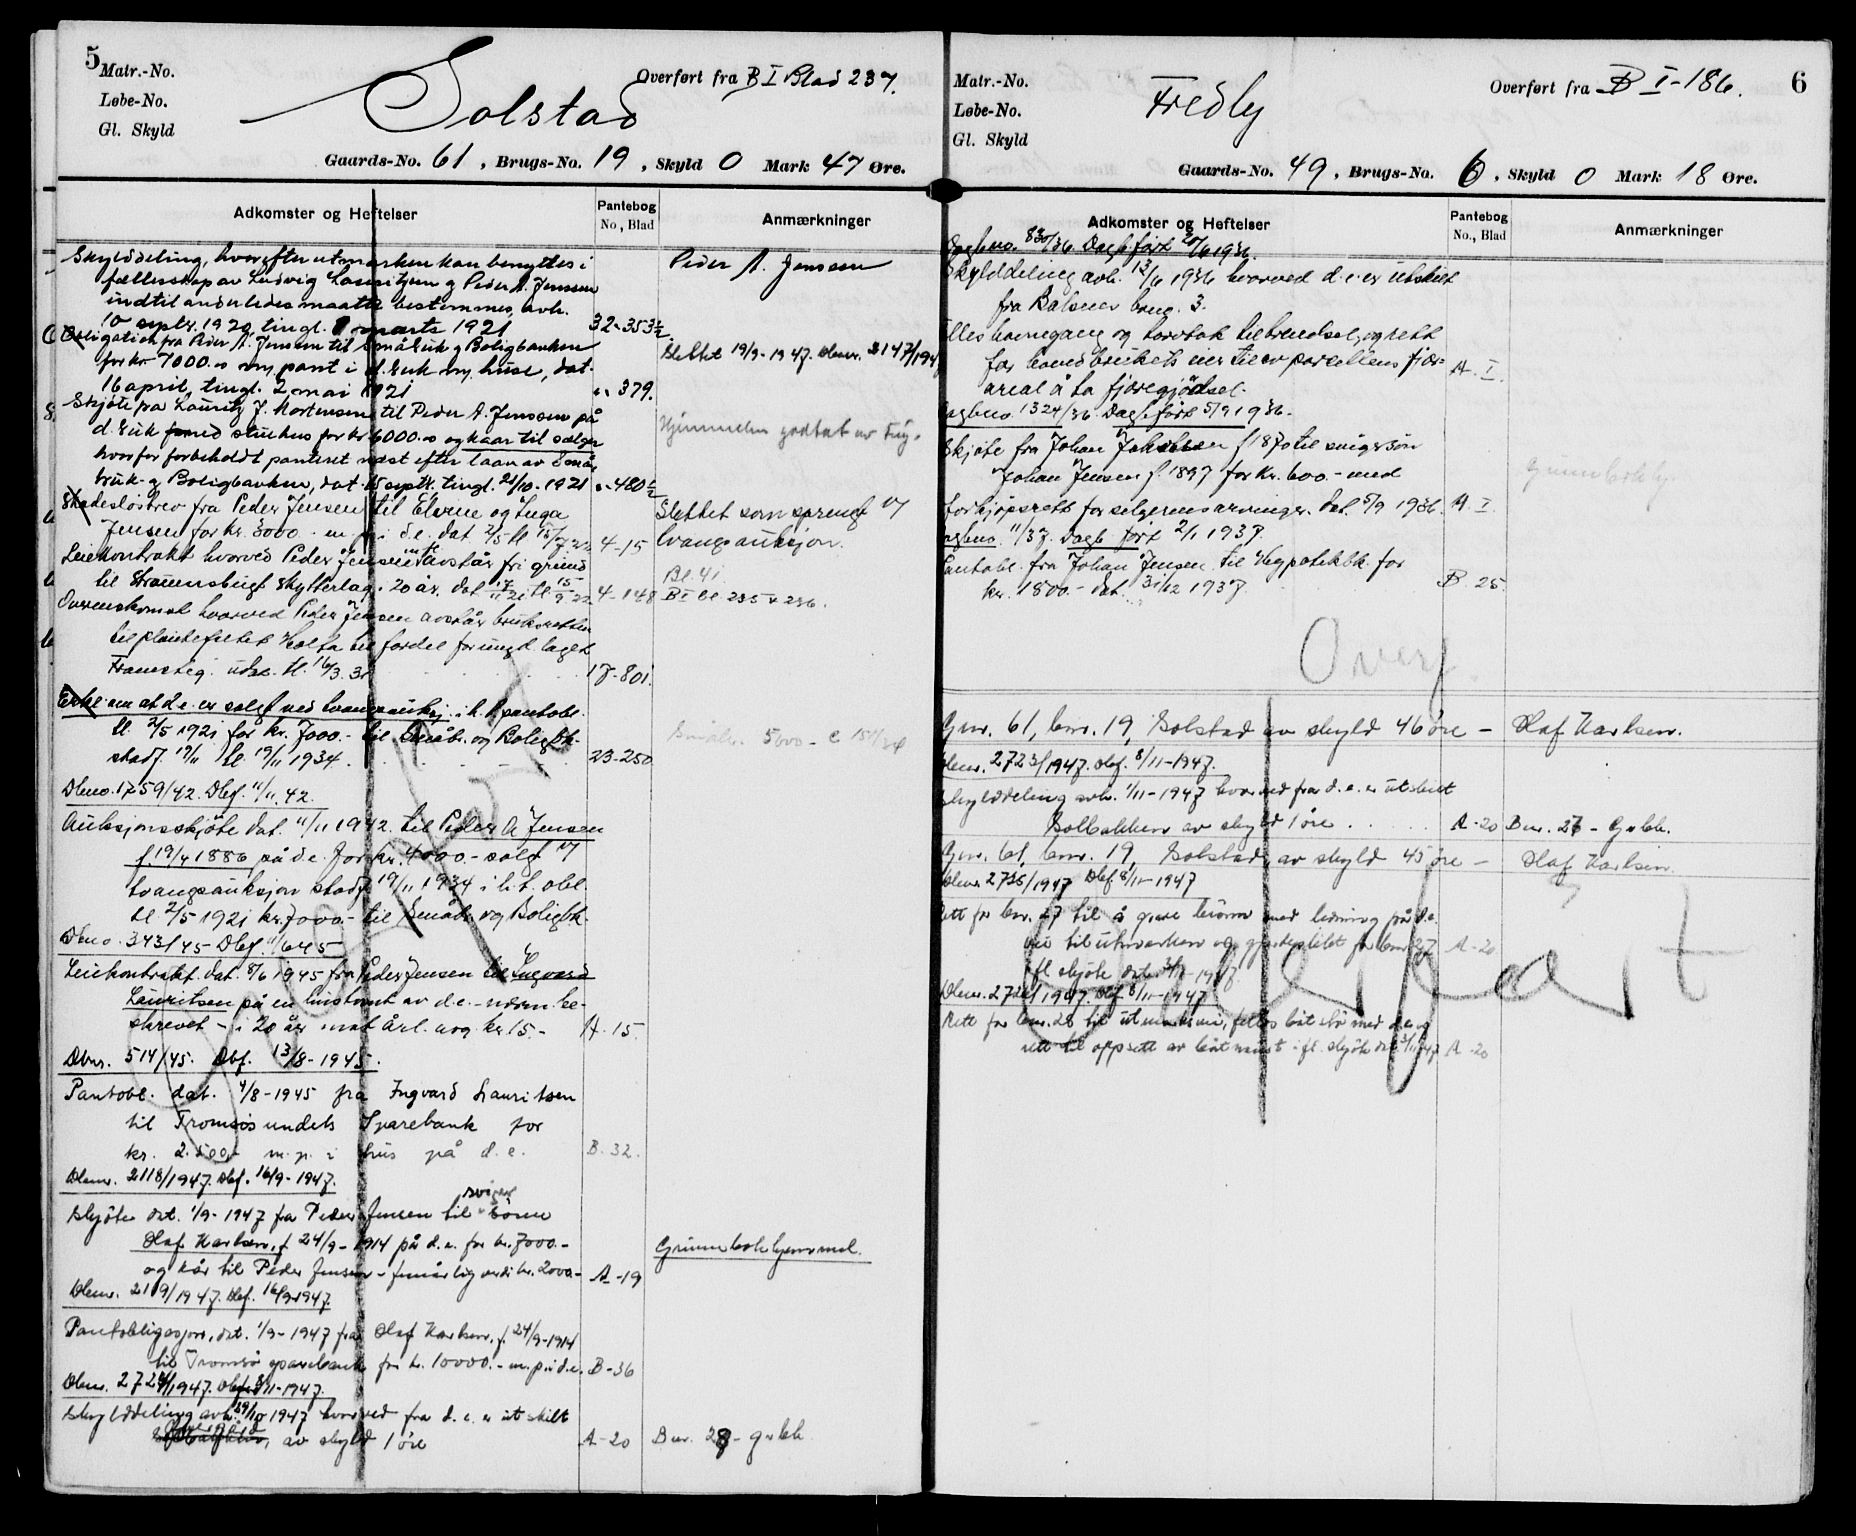 5
Matr.-No.
Løbe-No.
Gl. Skyld
Solstad
Overført fra B I Blad 237.
Gaards-No. 61, Brugs-No. 19, Skyld 0 Mark 47 Øre.
Adkomster og Heftelser
Pantebog No, Blad
Anmærkninger
Skylddeling, hvorefter utmarken kan benyttes i
fællesskap av Ludvig Lauritzen og Peder A. Jenssen
indtil anderledes maatte bestemmes, avh.
10 septr. 1920, tingl. marts 1921 32-353½
Peder A. Jenssen
Obligation fra Peder A. Jensen til Småbruk og Boligbanken
for kr 7000.00 m/ pant i d. bruk m/ huse, dat.
16 april, tingl. 2 mai 1921 " 379.
Slettet 19/9-1947. Dbnr. 2147/194
Skjøte fra Lauritz J. Mortensen til Peder A. Jenssen på
d. bruk stuehus for kr 6000.00 og kaar til sælger
hvorfor forbeholdt panteret næst efter laan av Små-
bruk- og Boligbanken, dat. 15 septr. tingl. 21/10-1921 "-480½
Hjemmelen godtat av
Skadesløsbrev fra Peder Jensen til Elerne og Inga
Jensen for kr. 3000 - m. p. i d.e. dat 7/5 tl 4-15
Slettet som sprengt v/
tvangsauksjon.
Leiekontrakt hvorved Peder Jensen avstår fri grund
til Straumsbugt skytterlag i 20 år, dat 4-148
Bl. 41.
B I bl 235 & 236.
Overenskomst hvorved Peder Jensen avstår bruksretten
til plantefeltet Holta til fordel for ungd. laget
Framsteg. utst. tl. 16/3.31 17-801.
Erkl. om at d.e. er solgt ved tvangsauksj. i h. t. pantobl.
tl. 2/5 1921 for kr. 7000.- til Småbr. og Boligbk.
stadf. 19/11 tl. 19/11 1934. 23-250
Småbr. 5600-
Dbno. 1759/42. Dbf. 11/11.42.
Auksjonsskjöte dat. 11/11 1942. til Peder A Jensen
f. 19/4 1886 på d.e. for kr. 4000.- solgt v/
tvangsauksjon stadf. 19/11 1934 i h. t. obl.
tl 2/5 1921 kr. 7000.- til Småbr. og Boligbk.
Dbno. 343/45 Dbf. 11/6 45
Leiekontrakt. dat. 8/6 1945 fra Peder Jensen til Ingvard
Lauritsen på en hustomt av d.e. - nærm. be-
skrevet - i 20 år mot årl. avg. kr. 15.- A. 15.
Dbnr. 514/45. Dbf. 13/8-1945.
Pantobl. dat. 4/8-1945 fra Ingvard Lauritsen
til Tromsösundets Sparebank for
kr. 2.500 m. p. i hus på d.e. B. 32.
Dbnr. 2118/1947. Dbf. 16/9-1947.
Skjöte dat. 1/9-1947 fra Peder Jensen til svigersönn
Olaf Karlsen, f 24/9-1914 på d.e. for kr. 7000.-
og kår til Peder Jensen - femårlig verdi kr. 2000.- A-19
Grunnbokhjemmel.
Dbnr. 2119/1947. Dbf. 16/9-1947.
Pantobligasjon, dat. 1/9-1947 fra Olaf Karlsen, f. 24/9-1914
til Tromsø sparebank for kr. 10000.- m. p. i d.e. B-36
Dbnr. 2721/1947. Dbf. 8/11-1947.
Skylddeling avh. 29/10 1947 hvorved fra d.e. er utskilt
av skyld 1 øre A-20
Bnr. 28 - g.r.bl.
Utgått
6
Matr.-No.
Løbe-No.
Gl. Skyld
Fredly
Overført fra B I-186.
Gaards-No. 49, Brugs-No. 6, Skyld 0 Mark 18 Øre.
Adkomster og Heftelser
Pantebog No., Blad
Anmærkninger
Dagbno. 830/36 Dagbført 20/6 1936.
Skylddeling avh. 13/6 1936 hvorved d.e. er utskilt
fra Balsnes brno. 3.
Felles havnegang og torvtak til brendsel, og rett
for hovedbrukets eier til av parsellens fjær-
areal å ta fjæregjödsel. A. I.
Dagbno. 1324/36. Dagbført 5/9 1936.
Skjøte fra Johan Jakobsen f 1870 til svigersøn
Johan Jensen f. 1897 for kr. 600.- med
forkjøpsrett for selgerens arvinger. dat. 5/9 1936. A. I.
Grunnbokhj.
Dagbno. 11/37. Dagb ført 2/1 1937.
Pantobl. fra Johan Jensen til Hypotekbk. for
kr. 1800.- dat. 31/12 1937. B. 25.
Overf.
Gnr. 61, bnr. 19, Solstad av skyld 46 øre - Olaf Karlsen.
Dbnr. 2723/1947. Dbf. 8/11-1947.
Skylddeling avh. 1/11-1947 hvorved fra d.e. er utskilt
Solbakken av skyld 1 øre A-20 Bnr. 27 - G.r.bl.
Gnr. 61, bnr. 19, Solstad, av skyld 45 øre - Olaf Karlsen.
Dbnr. 2725/1947 Dbf 8/11-1947
Rett for bnr. 27 til å grave brønn med ledning på d.e.
vei til utmarken og gjerdeplikt for bnr 27 A-20
ifl. skjöte
Dbnr. 2726/1947. Dbf 8/11-1947
Rett for bnr. 28 til utmarksvei, felles båtstø med d.e. og
rett til oppsett av båtnaust ifl. skjöte dat. A-20
Overført